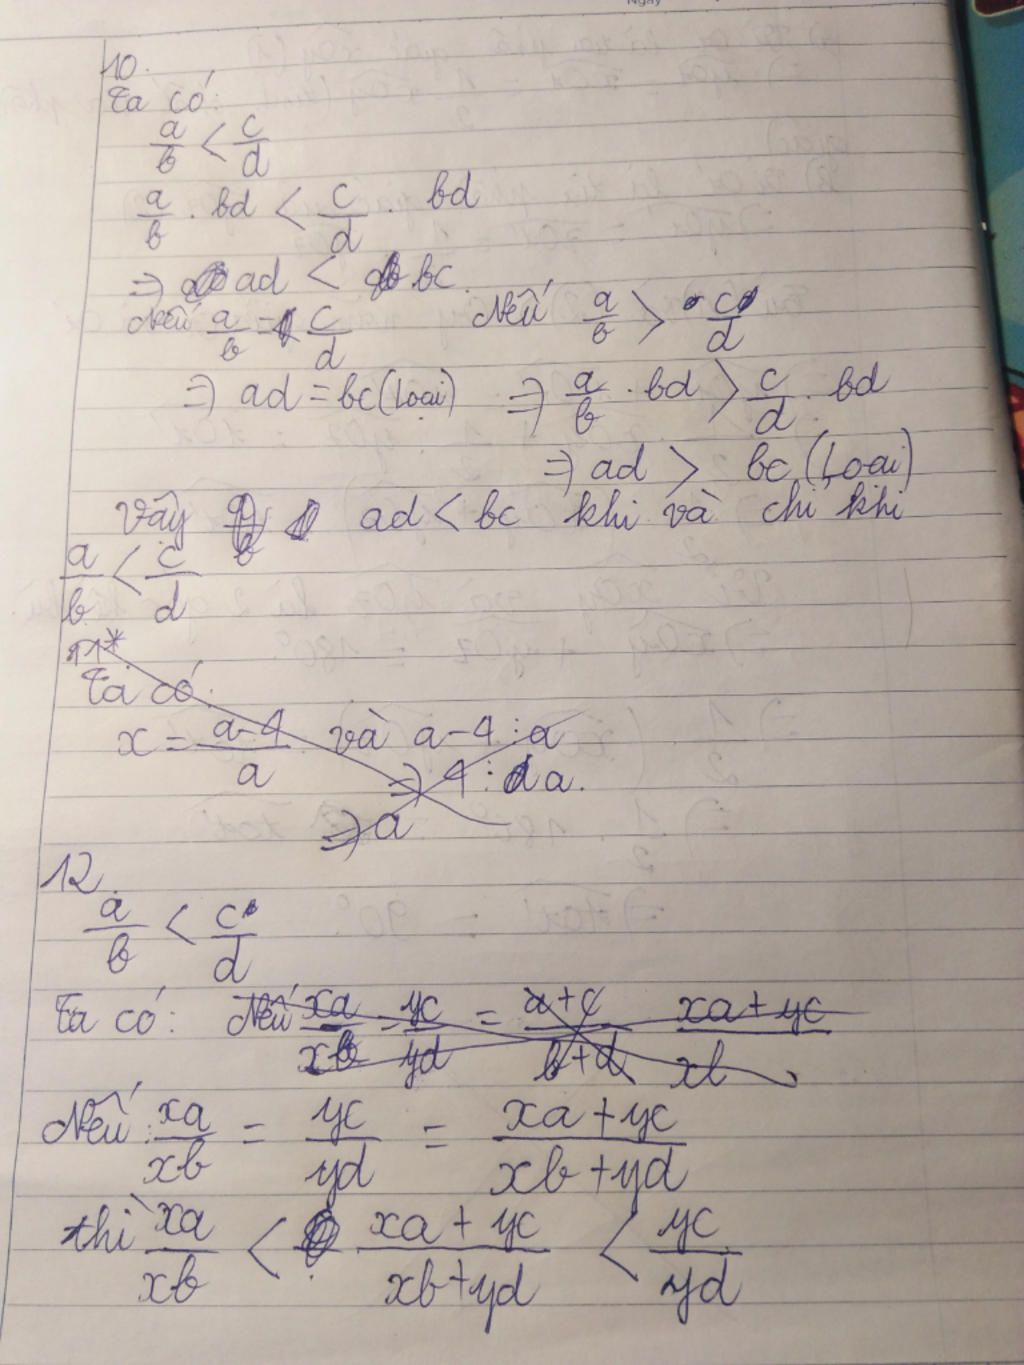 Ngày
10.
Ta có:
a/b < c/d
a/b . bd < c/d . bd
=> ad < bc.
Nếu a/b = c/d Nếu a/b > c/d
=> ad = bc (Loại) => a/b . bd > c/d . bd
=> ad > bc (Loại)
Vậy ad < bc khi và chỉ khi
a/b < c/d
11*
Ta có:
x = a-4/a và a-4 ⋮ a
=> 4 ⋮ a.
=> a
12.
a/b < c/d
Ta có: Nếu xa/xb = yc/yd = a+c/b+d xa+yc/xb
Nếu: xa/xb = yc/yd = xa+yc/xb+yd
thì xa/xb < xa+yc/xb+yd < yc/yd